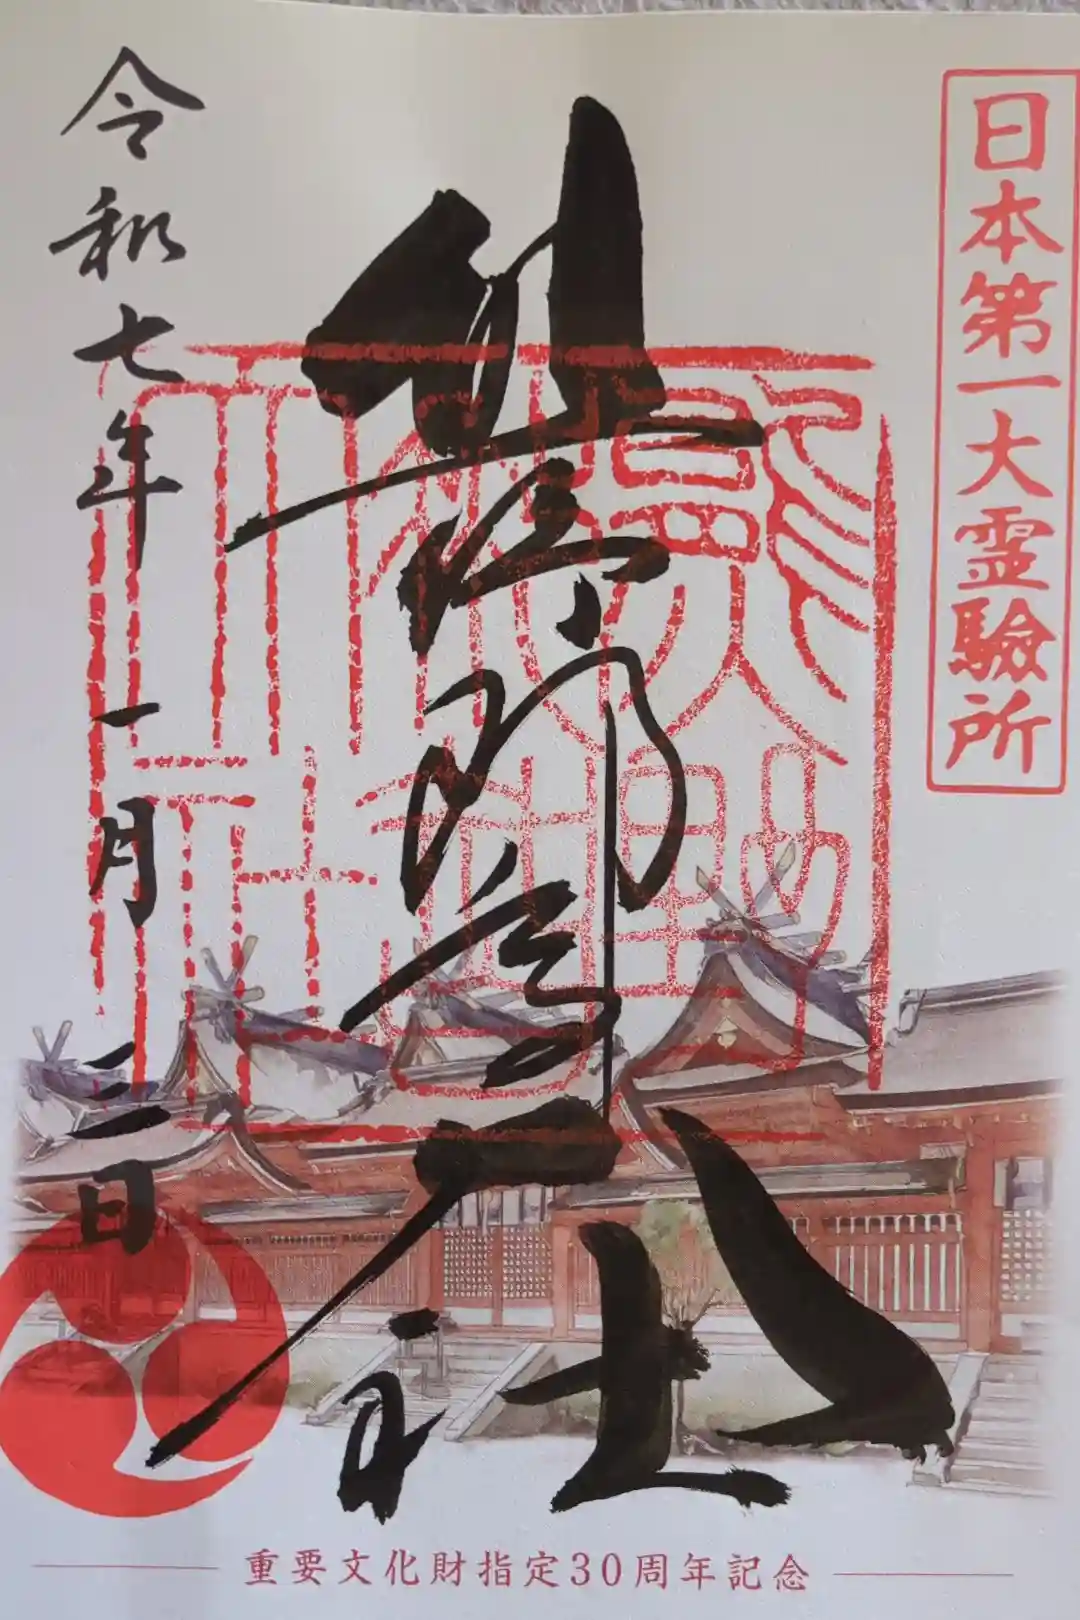 日本第一大霊驗所
熊野那智大社
令和七年一月三日
重要文化財指定30周年記念